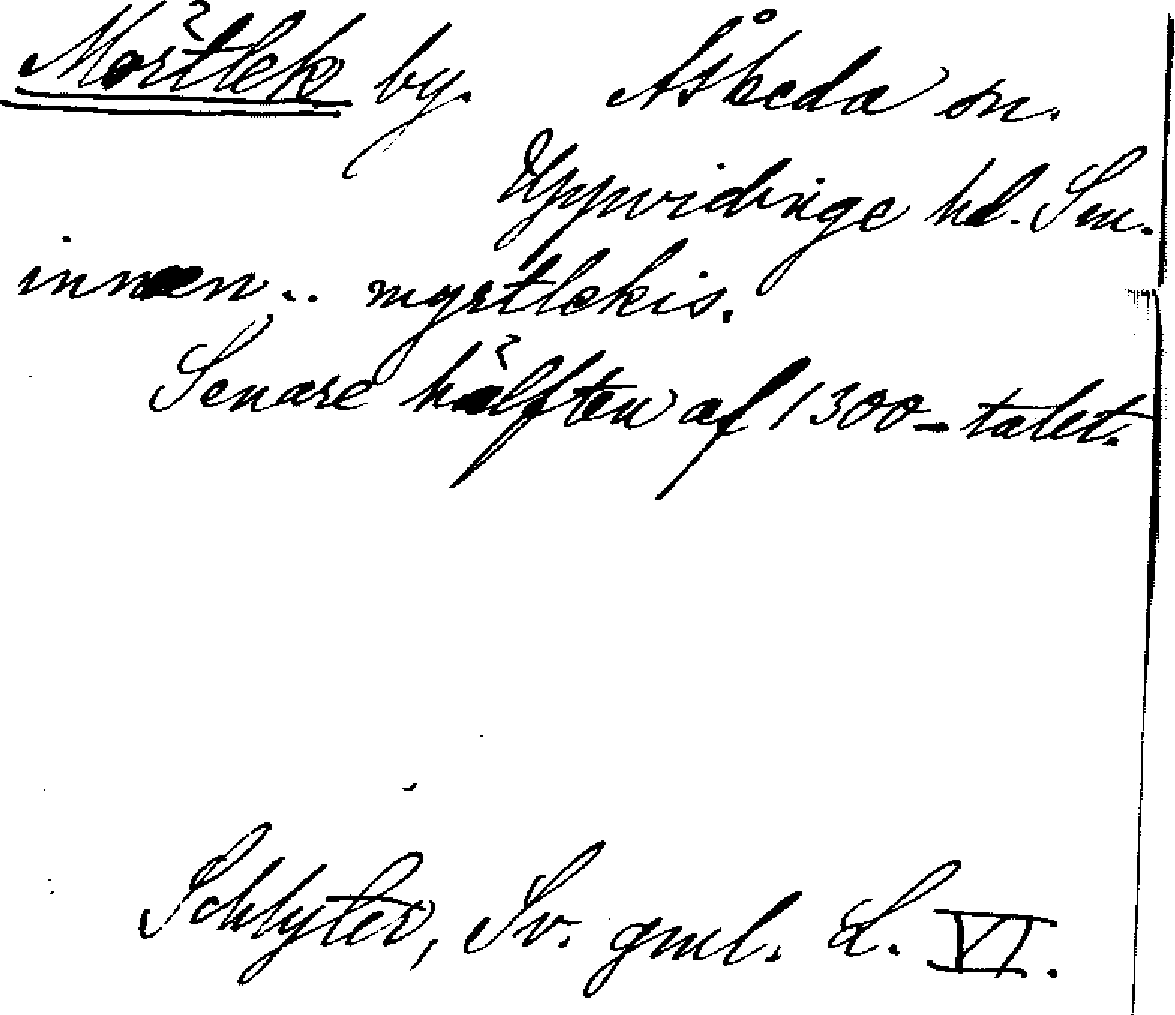 Mörtlek by. Åsheda sn.
Uppvidinge hd. Sm.
innan .. myrtlekis.
Senare hälften af 1300-talet.
Schlyter, Sv. gml. L. VI.